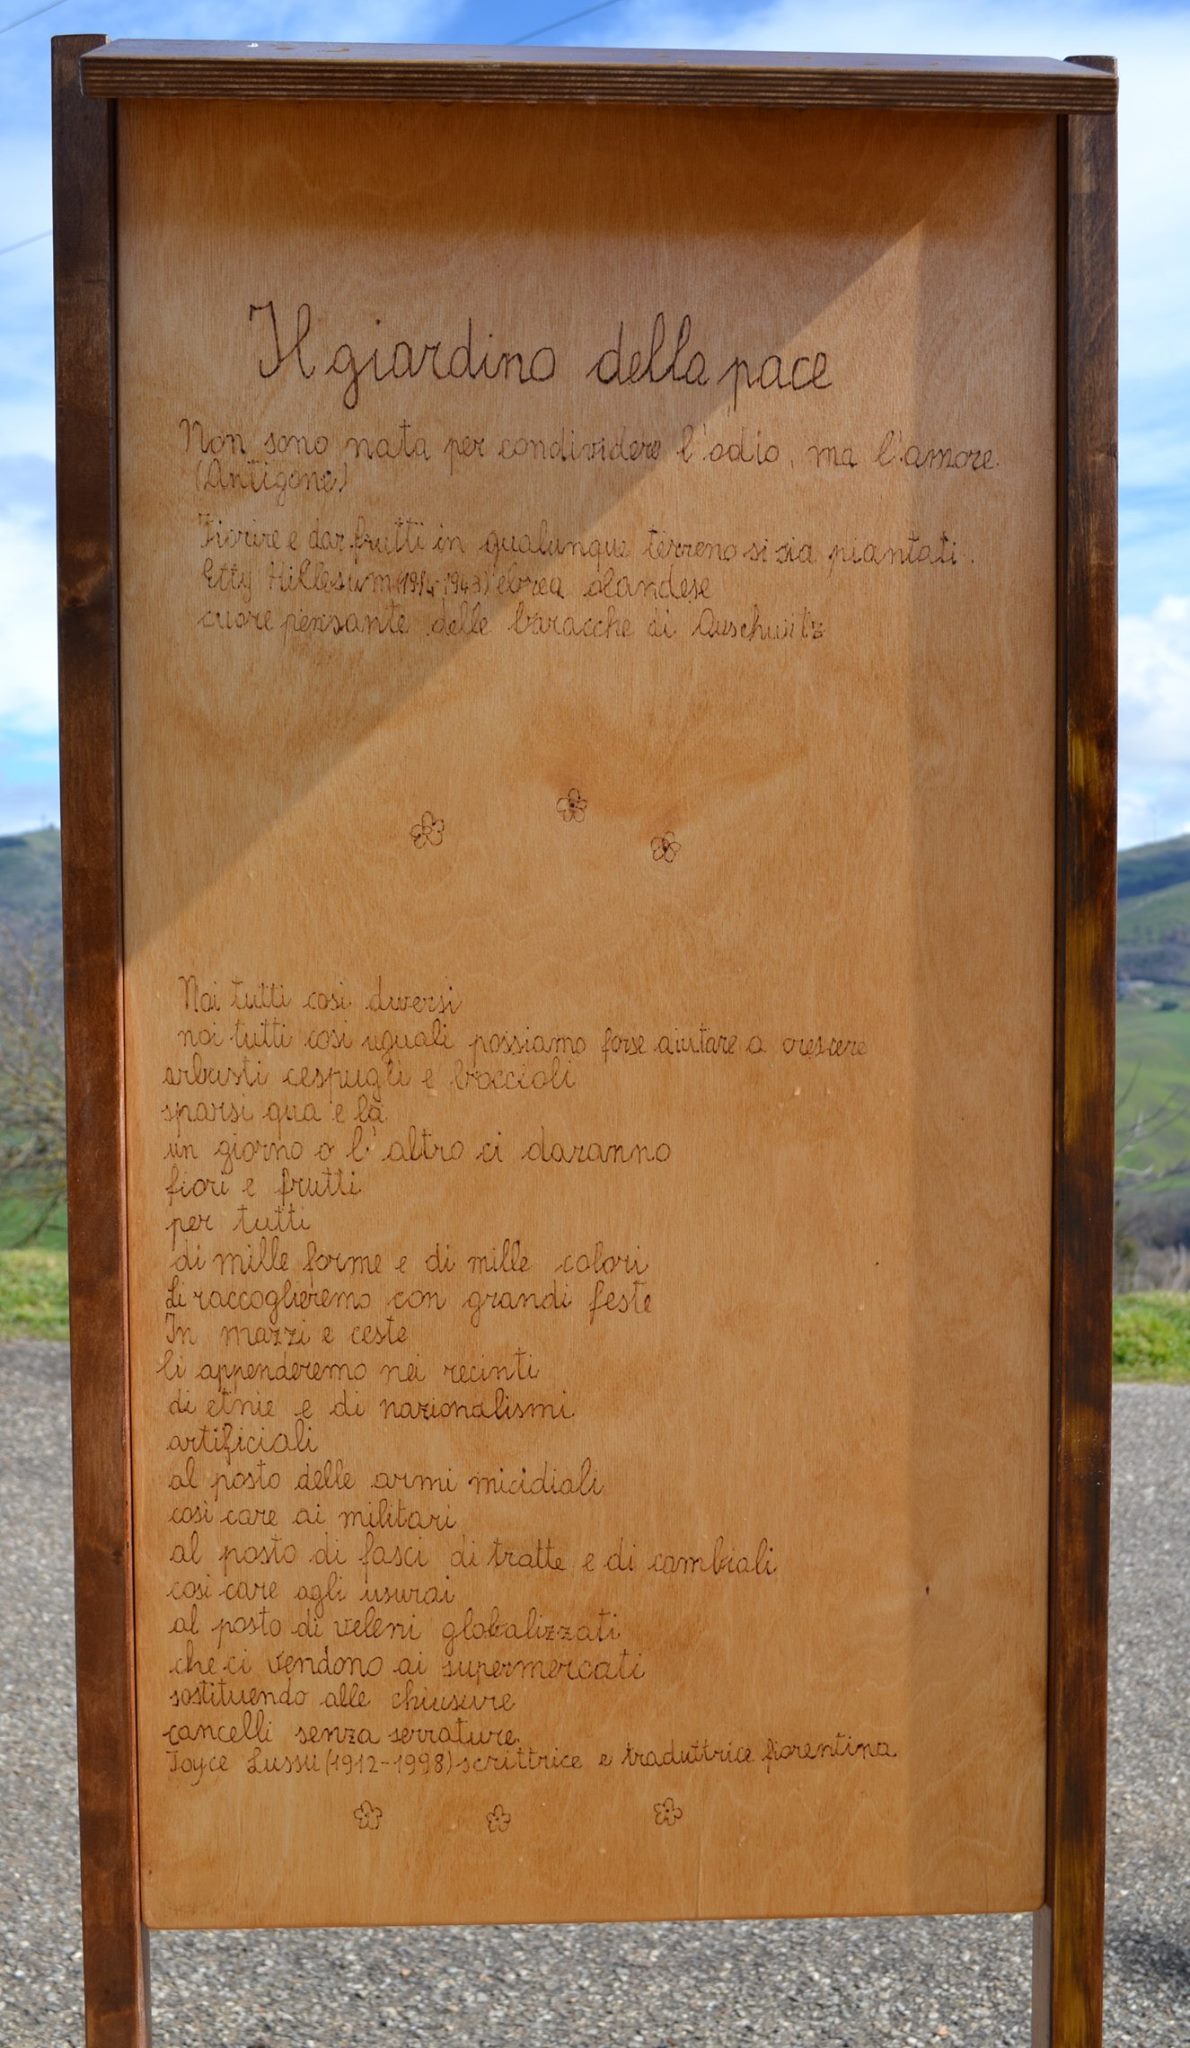 Il giardino della pace
Non sono nata per condividere l'odio, ma l'amore.
(Antigone)
Fiorire e dar frutti in qualunque terreno si sia piantati.
Etty Hillesum (1914-1943) ebrea olandese
cuore pensante delle baracche di Auschwitz
Noi tutti cosi diversi
noi tutti cosi uguali possiamo forse aiutare a crescere
arbusti cespugli e boccioli
sparsi qua e là
un giorno o l'altro ci daranno
fiori e frutti
per tutti
di mille forme e di mille colori
Li raccoglieremo con grandi feste
In mazzi e ceste
li appenderemo nei recinti
di etnie e di nazionalismi
artificiali
al posto delle armi micidiali
così care ai militari
al posto di fasci di tratte e di cambiali
così care agli usurai
al posto di veleni globalizzati
che ci vendono ai supermercati
sostituendo alle chiusure
cancelli senza serrature.
Joyce Lussu (1912-1998) scrittrice e traduttrice fiorentina